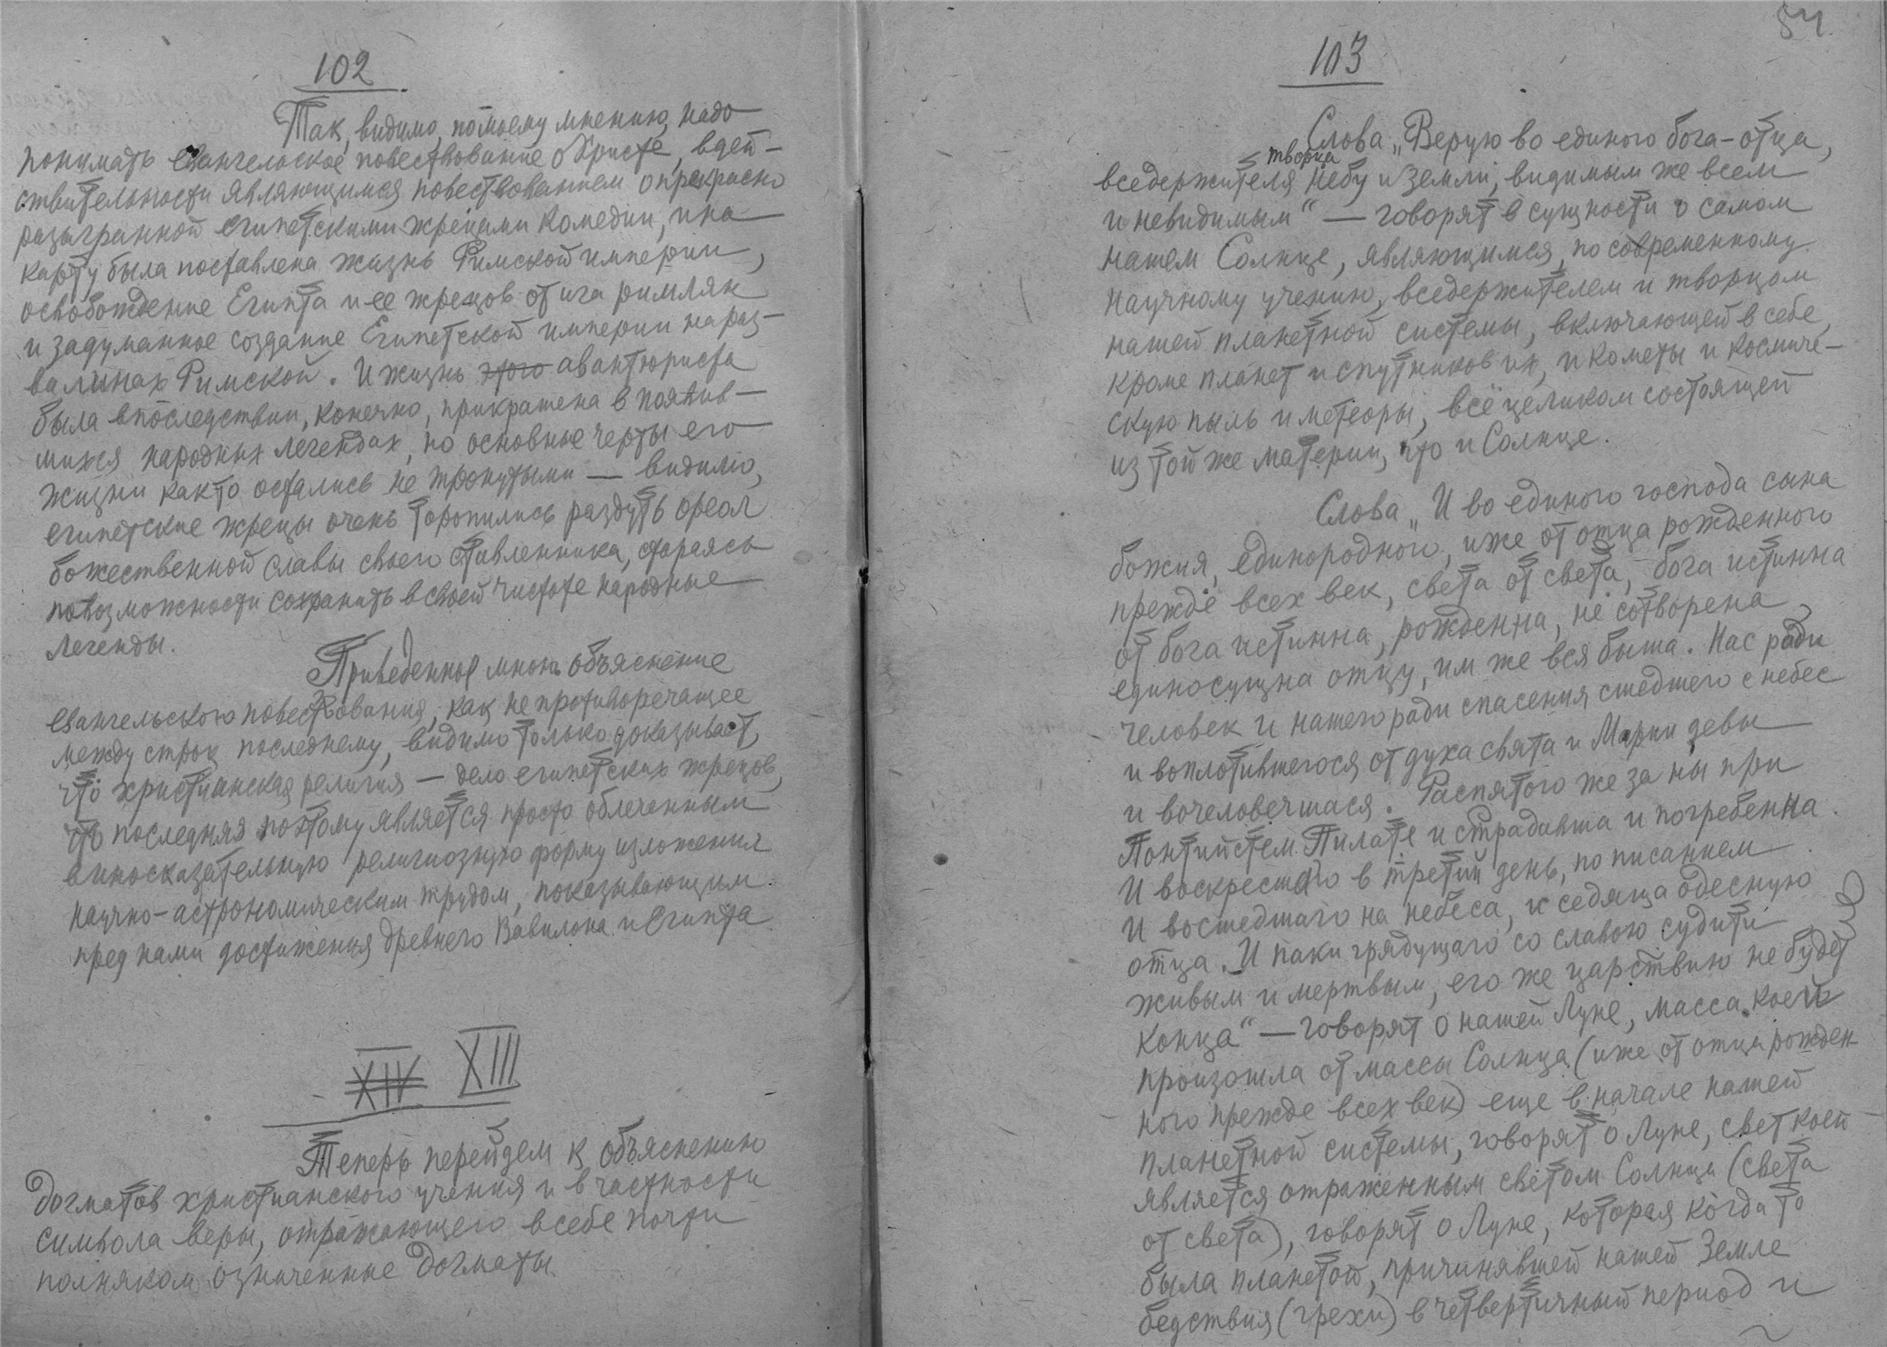 102
Так, видимо, по моему мнению, надо
понимать евангельское повествование о Христе, в дей-
ствительности являющимся повествованием о прекрасно
разыгранной египетскими жрецами комедии, и на
карту была поставлена жизнь Римской империи,
освобождение Египта и ее жрецов от ига римлян
и задуманное создание Египетской империи на раз-
валинах Римской. И жизнь этого авантюриста
была впоследствии, конечно, прикрашена в появив-
шихся народных легендах, но основные черты его
жизни как то остались не тронутыми — видимо,
египетские жрецы очень торопились раздуть ореол
божественной славы своего ставленника, стараясь
по возможности сохранить в своей чистоте народные
легенды.
Приведенное мною объяснение
евангельского повествования, как не противоречащее
между строк последнему, видимо только доказывает,
что христианская религия — дело египетских жрецов,
что последняя поэтому является просто облеченным
в иносказательную религиозную форму изложения
научно-астрономическим трудом, показывающим
пред нами достижения древнего Вавилона и Египта
XIV XIII
Теперь перейдем к объяснению
догматов христианского учения и в частности
символа веры, отражающего в себе почти
полняком означенные догматы
54
103
Слова „Верую во единого бога-отца,
творца
вседержителя небу и земли, видимым же всем
и невидимым“ — говорят в сущности о самом
нашем Солнце, являющимся, по современному
научному учению, вседержителем и творцом
нашей планетной системы, включающей в себе,
кроме планет и спутников их, и кометы и космиче-
скую пыль и метеоры, всё целиком состоящей
из той же материи, что и Солнце.
Слова „И во единого господа сына
божия, единородного, иже от отца рожденного
прежде всех век, света от света, бога истинна
от бога истинна, рожденна, не сотворена,
единосущна отцу, им же вся быша. Нас ради
человек и нашего ради спасения сшедшего с небес
и воплотившегося от духа свята и Марии девы
и вочеловечшася. Распятого же за ны при
Понтийстем Пилате и страдавша и погребенна.
И воскресшаго в третий день, по писанием.
И восшедшаго на небеса, и седяща одесную
отца. И паки грядущаго со славою судити
живым и мертвым, его же царствию не будет
конца“ — говорят о нашей Луне, масса коей
произошла от массы Солнца (иже от отца рожден-
ного прежде всех век) еще в начале нашей
планетной системы, говорят о Луне, свет коей
является отраженным светом Солнца (света
от света), говорят о Луне, которая когда то
была планетой, причинявшей нашей Земле
бедствия (грехи) в четвертичный период и